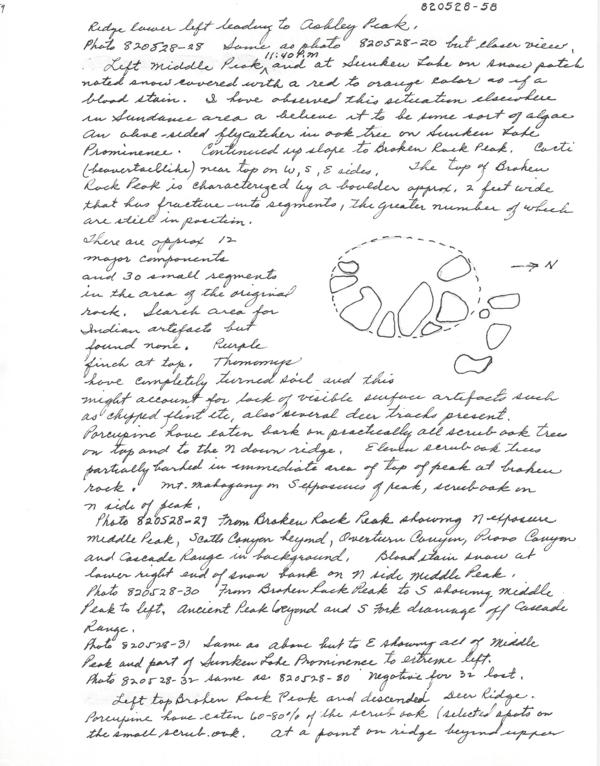 820528-58
Ridge lower left leading to Ashley Peak.
Photo 820528-28 Same as photo 820528-20 but closer view.
11:40 P.M
Left Middle Peak ^ and at Sunken Lake on snow patch
noted snow covered with a red to orange color as if a
blood stain. I have observed this situation elsewhere
in Sundance area a believe it to be some sort of algae
An olive-sided flycatcher in oak tree on Sunken Lake
Prominence. Continued up slope to Broken Rock Peak. Cacti
(beavertail like) near top on W, S, E sides. The top of Broken
Rock Peak is characterized by a boulder approx. 2 feet wide
that has fracture into segments, the greater number of which
are still in position.
There are approx 12
major components
and 30 small segments
in the area of the original
rock. Search area for
Indian artefacts but
found none. Purple
finch at top. Thomomys
→ N
have completely turned soil and this
might account for lack of visible surface artefacts such
as chipped flint etc, also several deer tracks present.
Porcupine have eaten bark on practically all scrub oak trees
on top and to the N down ridge. Eleven scrub oak trees
partially barked in immediate area of top of peak at broken
rock. Mt. Mahogany on S exposures of peak, scrub oak on
N side of peak.
Photo 820528-29 From Broken Rock Peak showing N exposure
Middle Peak, Scotts Canyon beyond, Overturn Canyon, Provo Canyon
and Cascade Range in background. Blood stain snow at
lower right end of snow bank on N side Middle Peak.
Photo 820528-30 From Broken Rock Peak to S showing Middle
Peak to left, Ancient Peak beyond and S Fork drainage off Cascade
Range.
Photo 820528-31 Same as above but to E showing all of Middle
Peak and part of Sunken Lake Prominence to extreme left.
Photo 820528-32 same as 820528-30 negative for 32 lost.
Left top Broken Rock Peak and descended Deer Ridge.
Porcupine have eaten 60-80% of the scrub oak (selected spots on
the small scrub oak. At a point on ridge beyond upper